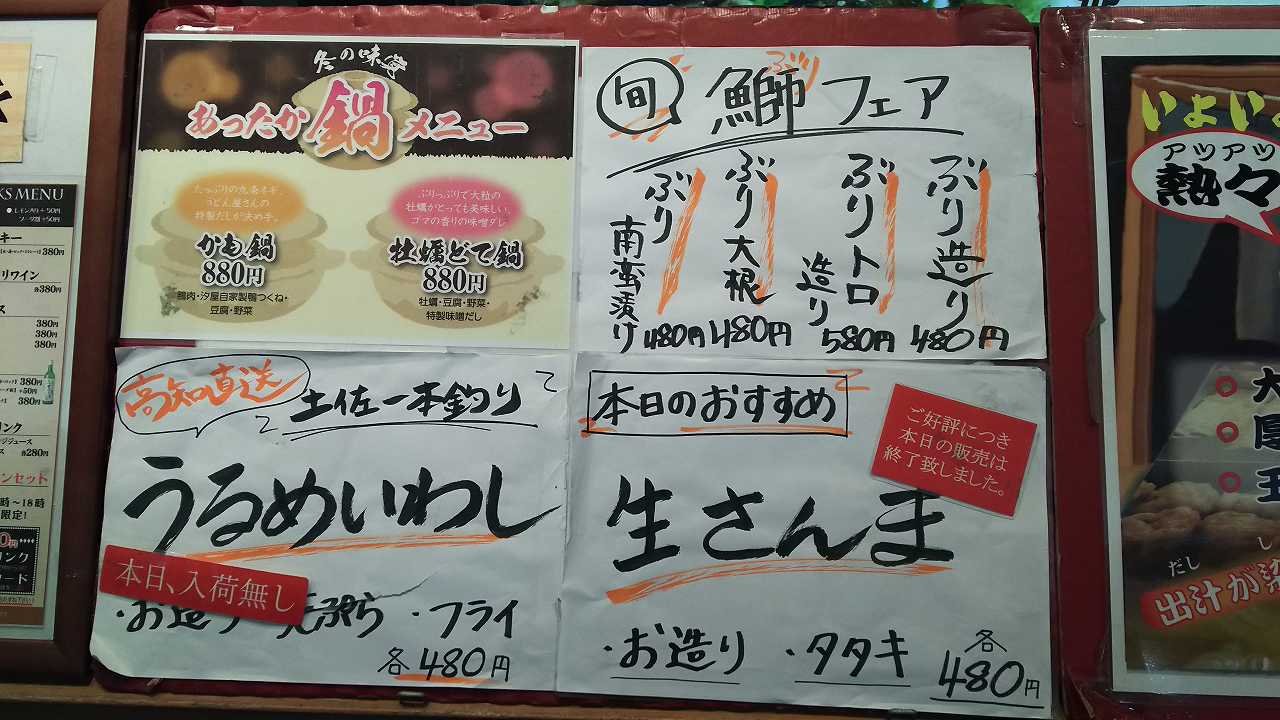 KS MENU
● レモン入り+50円
ソーダ割+50円
キー
380円
リワイン
各380円
ス
380円
380円
380円
380円
380円
リンク
ンジジュース
ス 各280円
ンセット
時～18時
限定!
リンク
ード
冬の味覚
あったか鍋メニュー
たっぷりの九条ネギ。
うどん屋さんの
特製だしが決め手。
かも鍋
880円
鴨肉・汐屋自家製鴨つくね・
豆腐・野菜
ぷりっぷりで大粒の
牡蠣がとっても美味しい。
ゴマの香りの味噌ダレ
牡蠣どて鍋
880円
牡蠣・豆腐・野菜・
特製味噌だし
旬
ぶり
鰤フェア
ぶり造り
480円
ぶりトロ
造り
580円
ぶり大根
480円
ぶり
南蛮漬け
480円
高知直送
土佐一本釣り
うるめいわし
本日、入荷無し
・お造り 天ぷら ・フライ
各480円
本日のおすすめ
ご好評につき
本日の販売は
終了致しました。
生さんま
・お造り ・タタキ
各
480円
いよい
アツアツ
熱々
大
厚
玉
だし
し
出汁が染